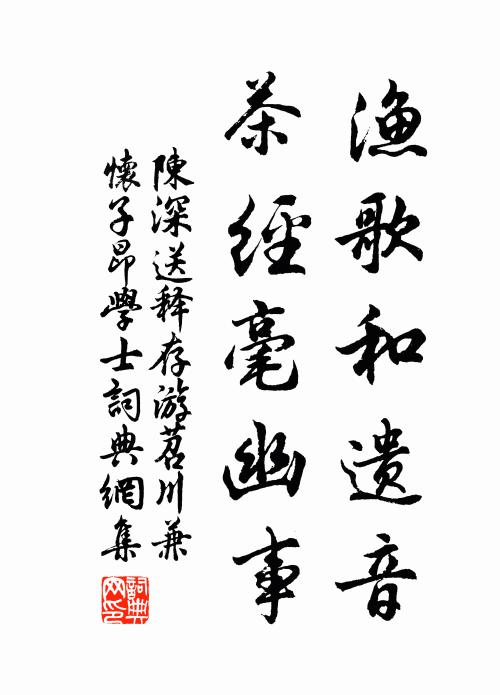 渔歌和遗音
茶經毫幽事
陳深送释存游苕川兼
懷子昂學士詞典網集
詞典网印